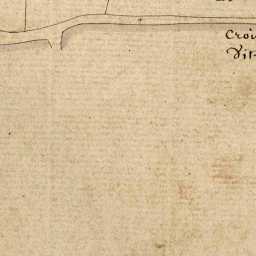 Croi
Vit